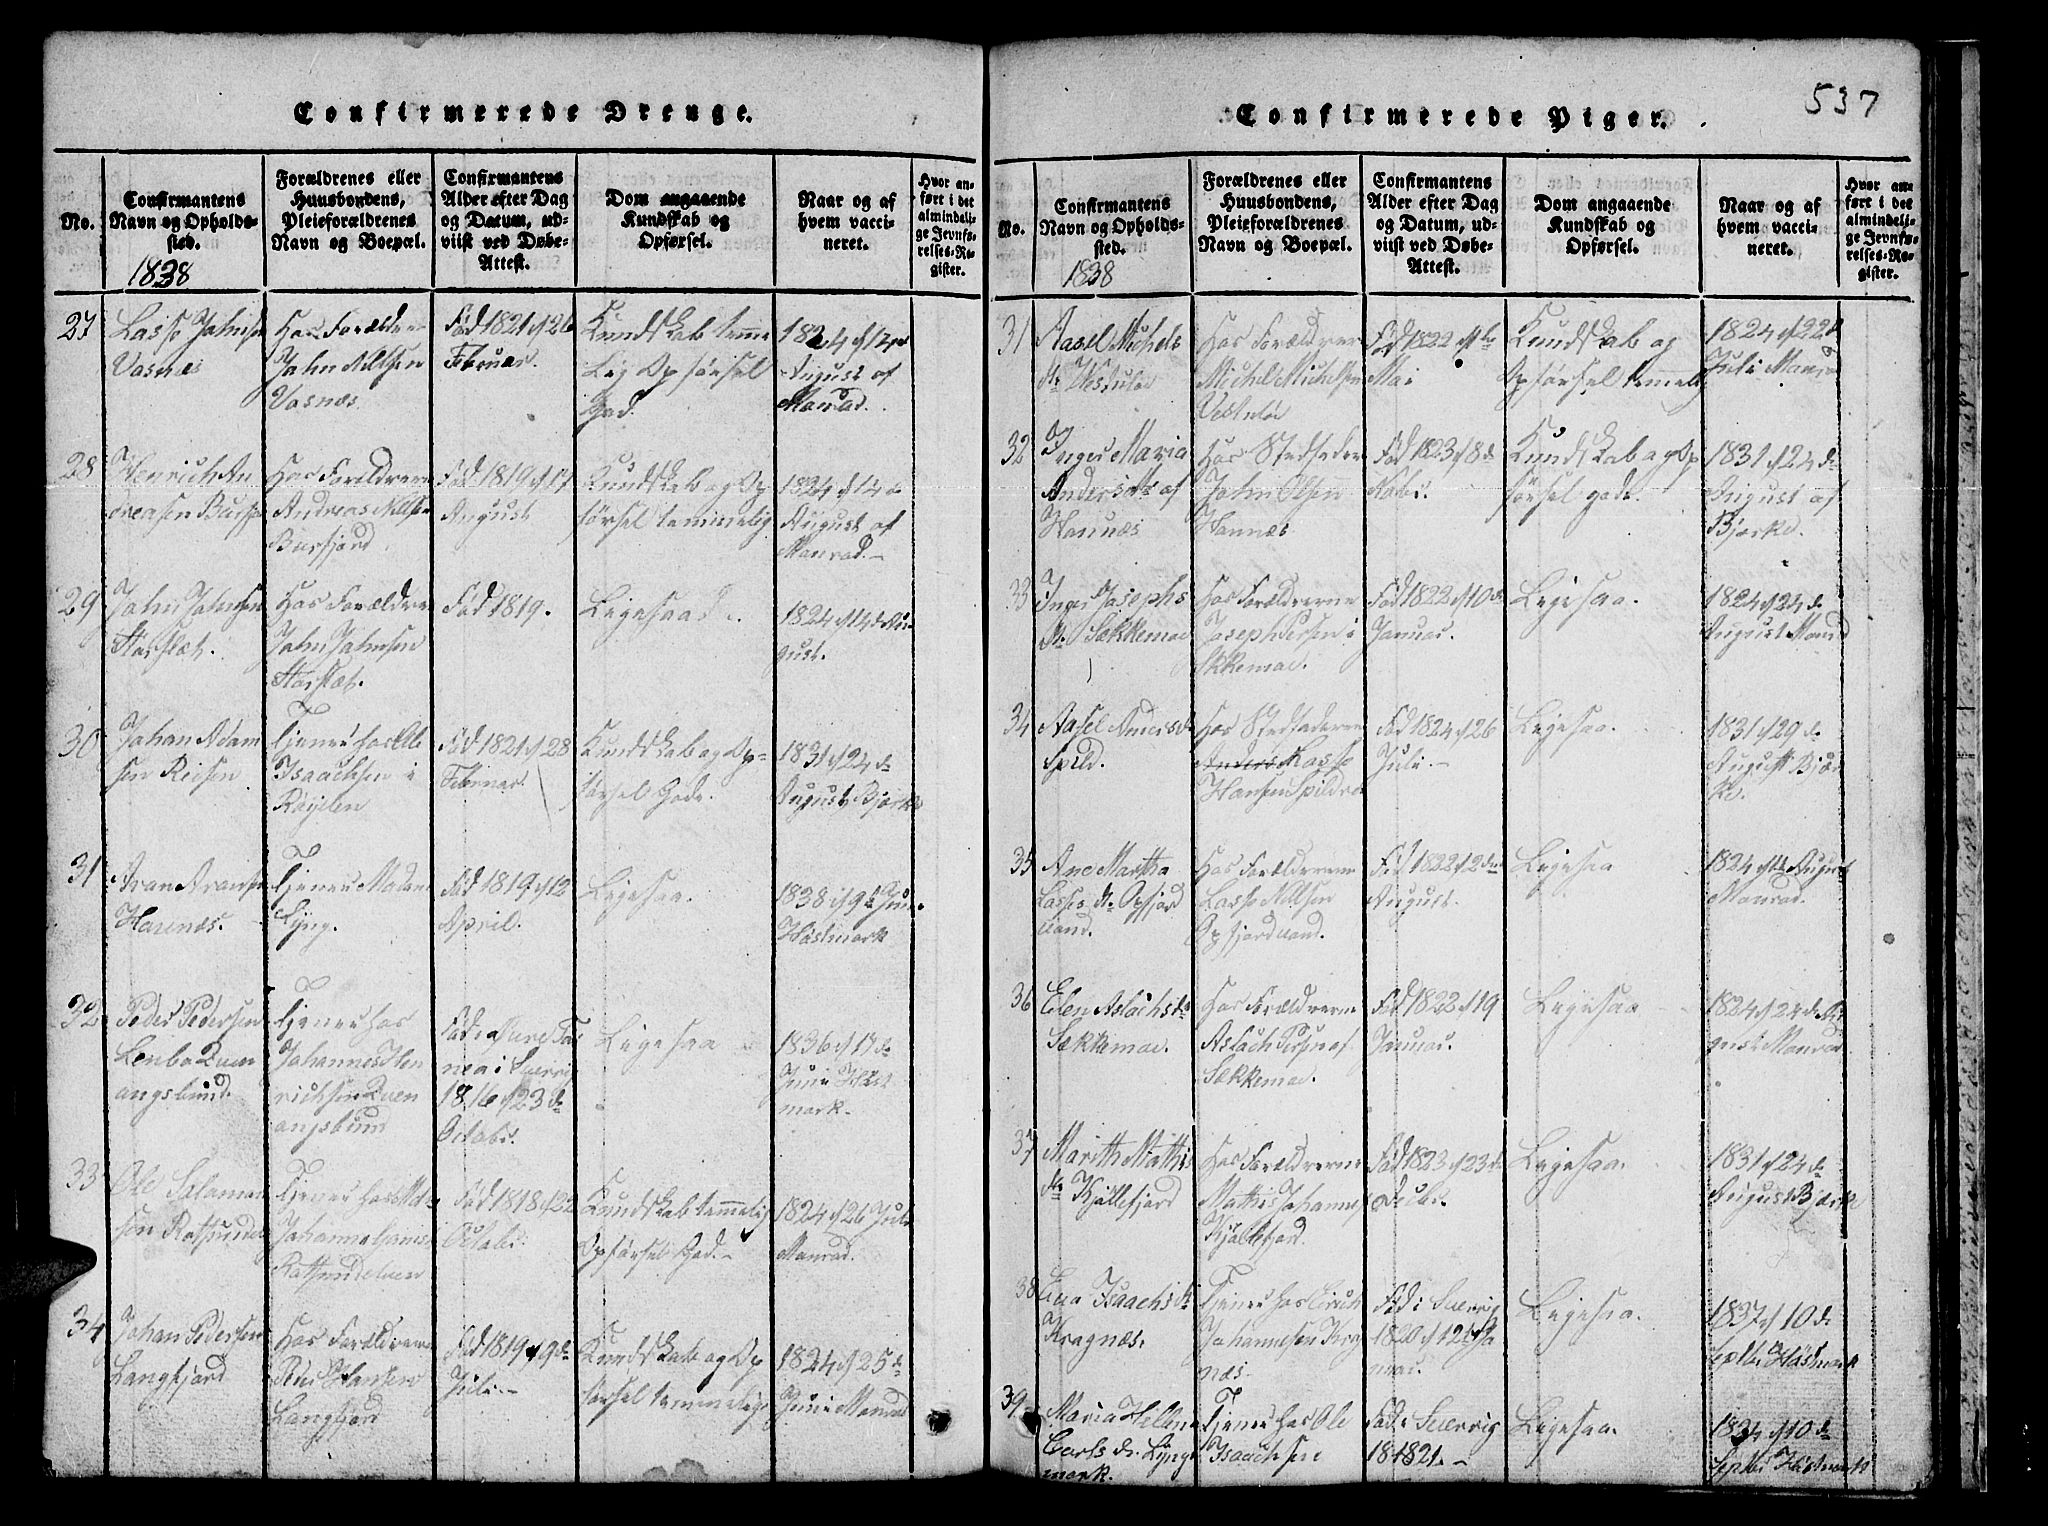 537
Confirmerede Drenge.
No.
Confirmantens
Navn og Opholds-
sted.
1838
Forældrenes eller
Huusbondens,
Pleieforældrenes
Navn og Boepæl.
Confirmantens
Alder efter Dag
og Datum, ud-
viist ved Døbe-
Attest.
Dom angaaende
Kundskab og
Opførsel.
Naar og af
hvem vacci-
neret.
Hvor an-
ført i det
almindeli-
ge Jevnfø-
relses-Re-
gister.
27
Lasse Johnsen
Vasnæs
Hos Forældrene
John Nilsen
Vasnæs
Fød 1821 d 26
Februar.
Kundskab temme
lig Opførsel
God.
1824 d 14de
August af
Monrad.
28
Henrich An
dreasen Burfjo
Hos Forældrene
Andreas Nilsen
Burfjord
Fød 1819 d 17
August
Kundskab og Op
førsel temmelig
1824 d 14de
August af
Monrad.-
29
John Johnsen
Storslæt.
Hos Forældrene
John Johnsen
Storslæt.
Fød 1819.
Ligesaa.
1824 d 14de Au-
gust.
30
Johan Adam
sen Reisen
Tjener hos Ole
Isaachsen i
Fød 1821 d 28
Februar
Kundskab og Op-
førsel Gode.
1831 d 24de
August Bjerke
31
Aron Aronsen
Havnæs.
Tjener Madam
Lyng.
Fød 1819 d 12
April.
Ligesaa.
1838 d 9de Juni
Høstmark
32
Peder Pedersen
Quæn
angsbund.
Tjener hos
Johannes Hen
richsen Quæn
angsbund
Fød i
i Sverrig
1816 d 23de
Octobr.
Ligesaa
1836 d 17de
Juni Høst
mark.
33
Ole Salamon
sen Rotsundel
Tjener hos
Rotsundelven
Fød 1818 d 22
Octobr.
Kundskab temmelig
Opførsel God.-
1824 d 26 Juli
Monrad.
34
Johan Pedersen
Langfjord
Hos Forældrene
Langfjord
Fød 1819 d 9de
Juli.-
Kundskab og Op
førsel temmelige
1824 d 25de
Juni Monrad
Confirmerede Piger.
No.
Confirmantens
Navn og Opholds-
sted.
1838
Forældrenes eller
Huusbondens,
Pleieforældrenes
Navn og Boepæl.
Confirmantens
Alder efter Dag
og Datum, ud-
viist ved Døbe-
Attest.
Dom angaaende
Kundskab og
Opførsel.
Naar og af
hvem vacci-
neret.
Hvor an-
ført i det
almindeli-
ge Jevnfø-
relses-Re-
gister.
31
Aasel Michels
dr
Hos Forældrene
Michel Michelsen
Fød 1822 d
Mai
Kundskab og
Opførsel temmelig
1824 d 22de
Juli Monrad
32
Inger Maria
Anders dr af
Havnæs
Hos Stedfader
John Olsen
Havnæs
Fød 1823 d 8de
Nobr.
Kundskab og Op
førsel gode.
1831 d 24de
August af
Bjerke.
33
Inger Josephs
dr Sækkemoe
Hos Forældrerne
Joseph Persen i
Sækkemoe.
Fød 1822 d 10de
Januar.
Ligesaa.
1824 d 24de
August Monrad
34
Aasel Anders dr
Spild.
Hos Stedfaderen
Anders Lasse
Hansen Spildra
Fød 1824 d 26
Juli.-
Ligesaa.
1831 d 29de
August Bjer
ke.
35
Ane Martha
Lasses dr Opfjord
vand.
Hos Forældrerne
Lasse Nilsen
Opfjordvand.
Fød 1822 d 2den
August.
Ligesaa
1824 d August
Monrad.
36
Elen Aslachs dr
Sækkemoe.
Hos Forældrerne
Aslach
Sækkemoe.
Fød 1822 d 19
Januar.
Ligesaa
1824 d 24de Au
gust Monrad
37
Marith Mathis
dr Kjøllefjord
Hos Forældrerne
Mathis Johannes
Kjøllefjord.
Fød 1823 d 23de
Decbr.
Ligesaa.
1831 d 24de
August Bjerke
38
Eva Isaachs dr
Kragnæs.
Tjener hos Erich
Johannesen Krag
næs.
Fød i Sverrig
1820 d 12te Ja
nuar.
Ligesaa.
1837 d 10de
Septbr Høstmark
39
Maria Helena
Carls dr. Lyngs
mark.
Tjener hos Ole
Isaachsen
Fød i Sverrig
1821.-
Ligesaa.
1834 d 10de
Septbr Høstmark